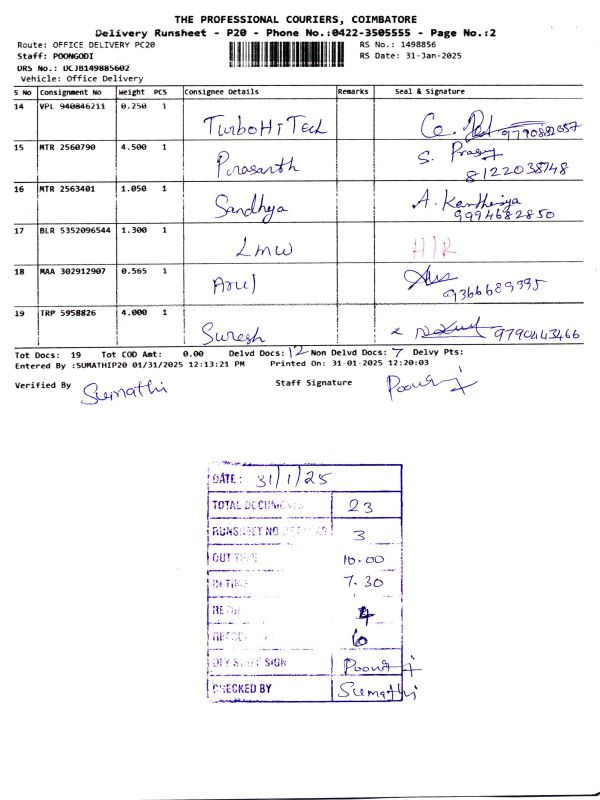 THE PROFESSIONAL COURIERS, COIMBATORE
Delivery Runsheet - P20 - Phone No.:0422-3505555 - Page No.:2
Route: OFFICE DELIVERY PC20 RS No.: 1498856
Staff: POONGODI RS Date: 31-Jan-2025
DRS No.: DCJB149885602
Vehicle: Office Delivery
S No Consignment No Weight PCS Consignee Details Remarks Seal & Signature
14 VPL 940846211 0.250 1
TurboHiTech
15 MTR 2560790 4.500 1
Prasanth 8122038748
16 MTR 2563401 1.050 1
Sandhya 9994682850
17 BLR 5352096544 1.300 1
LMW H/R
18 MAA 302912907 0.565 1
Arul
19 TRP 5958826 4.000 1
Suresh
Tot Docs: 19 Tot COD Amt: 0.00 Delvd Docs: 12 Non Delvd Docs: 7 Delvy Pts:
Entered By :SUMATHIP20 01/31/2025 12:13:21 PM Printed On: 31-01-2025 12:20:03
Verified By Sumathi Staff Signature
DATE: 31/1/25
TOTAL 23
RUNSHEET NO 3
OUT TIME 10.00
IN TIME 7.30
4
6
SIGN
CHECKED BY Sumathi